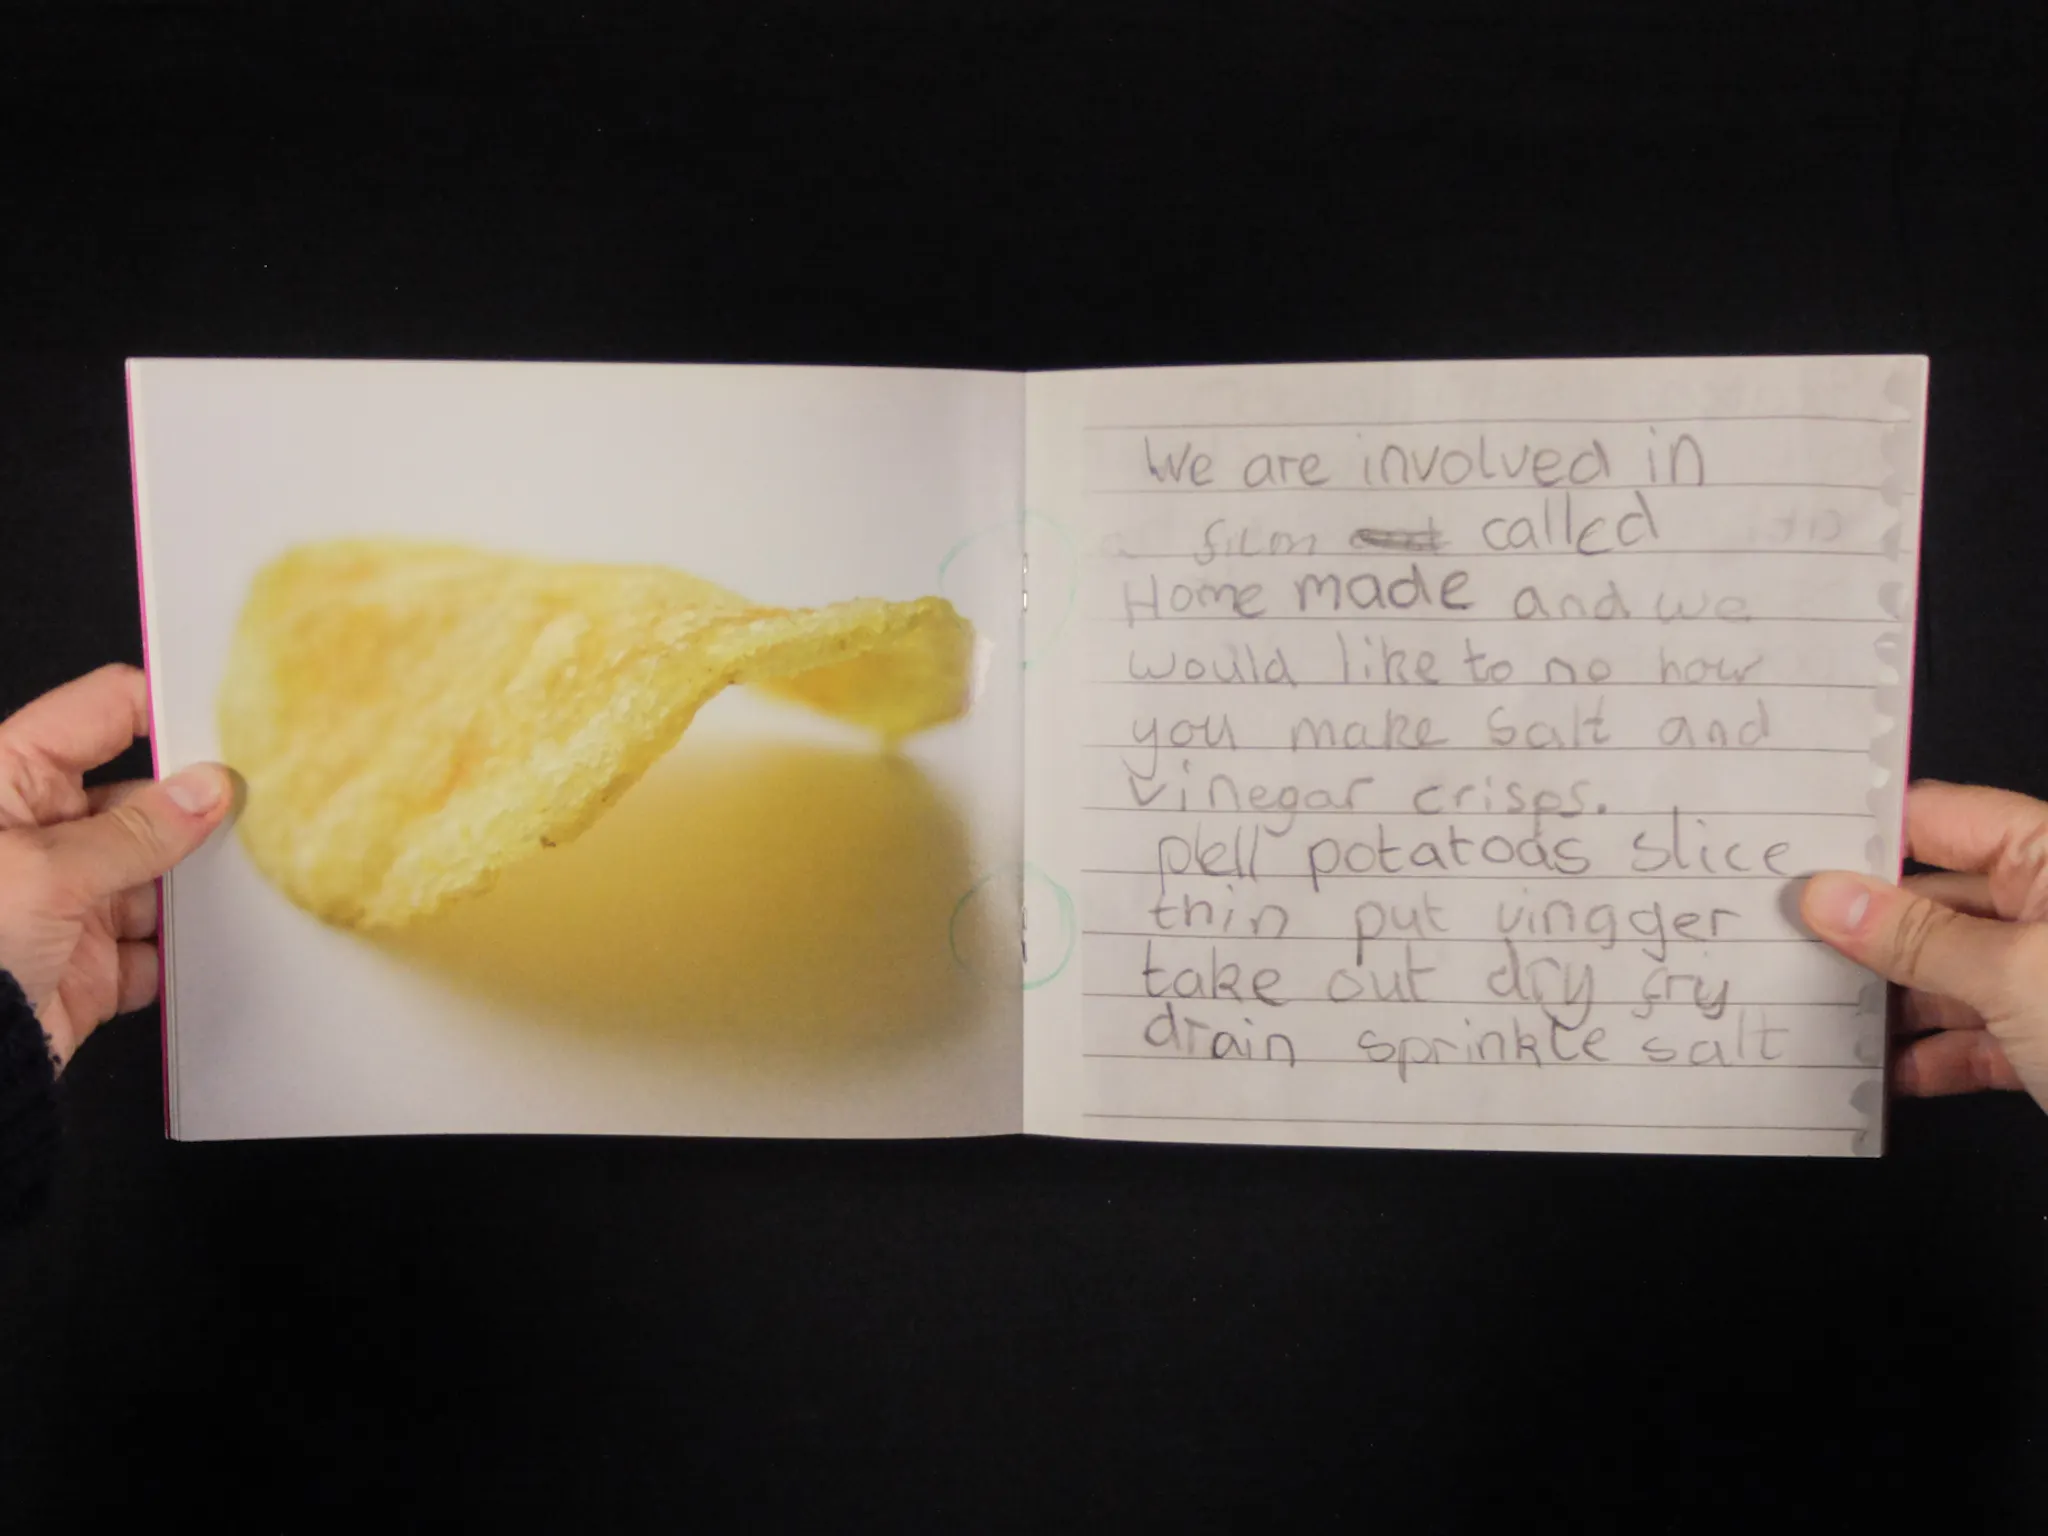 We are involved in
a film called
Home made and we
would like to no how
you make salt and
vinegar crisps.
pell potatoas slice
thin put vingger
take out dry fry
drain sprinkle salt